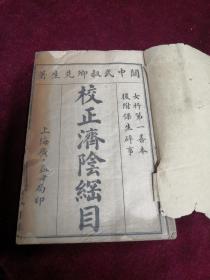 關中武叔卿先生著
女科第一善本
後附保生碎事
校正濟陰綱目
上海廣益書局印